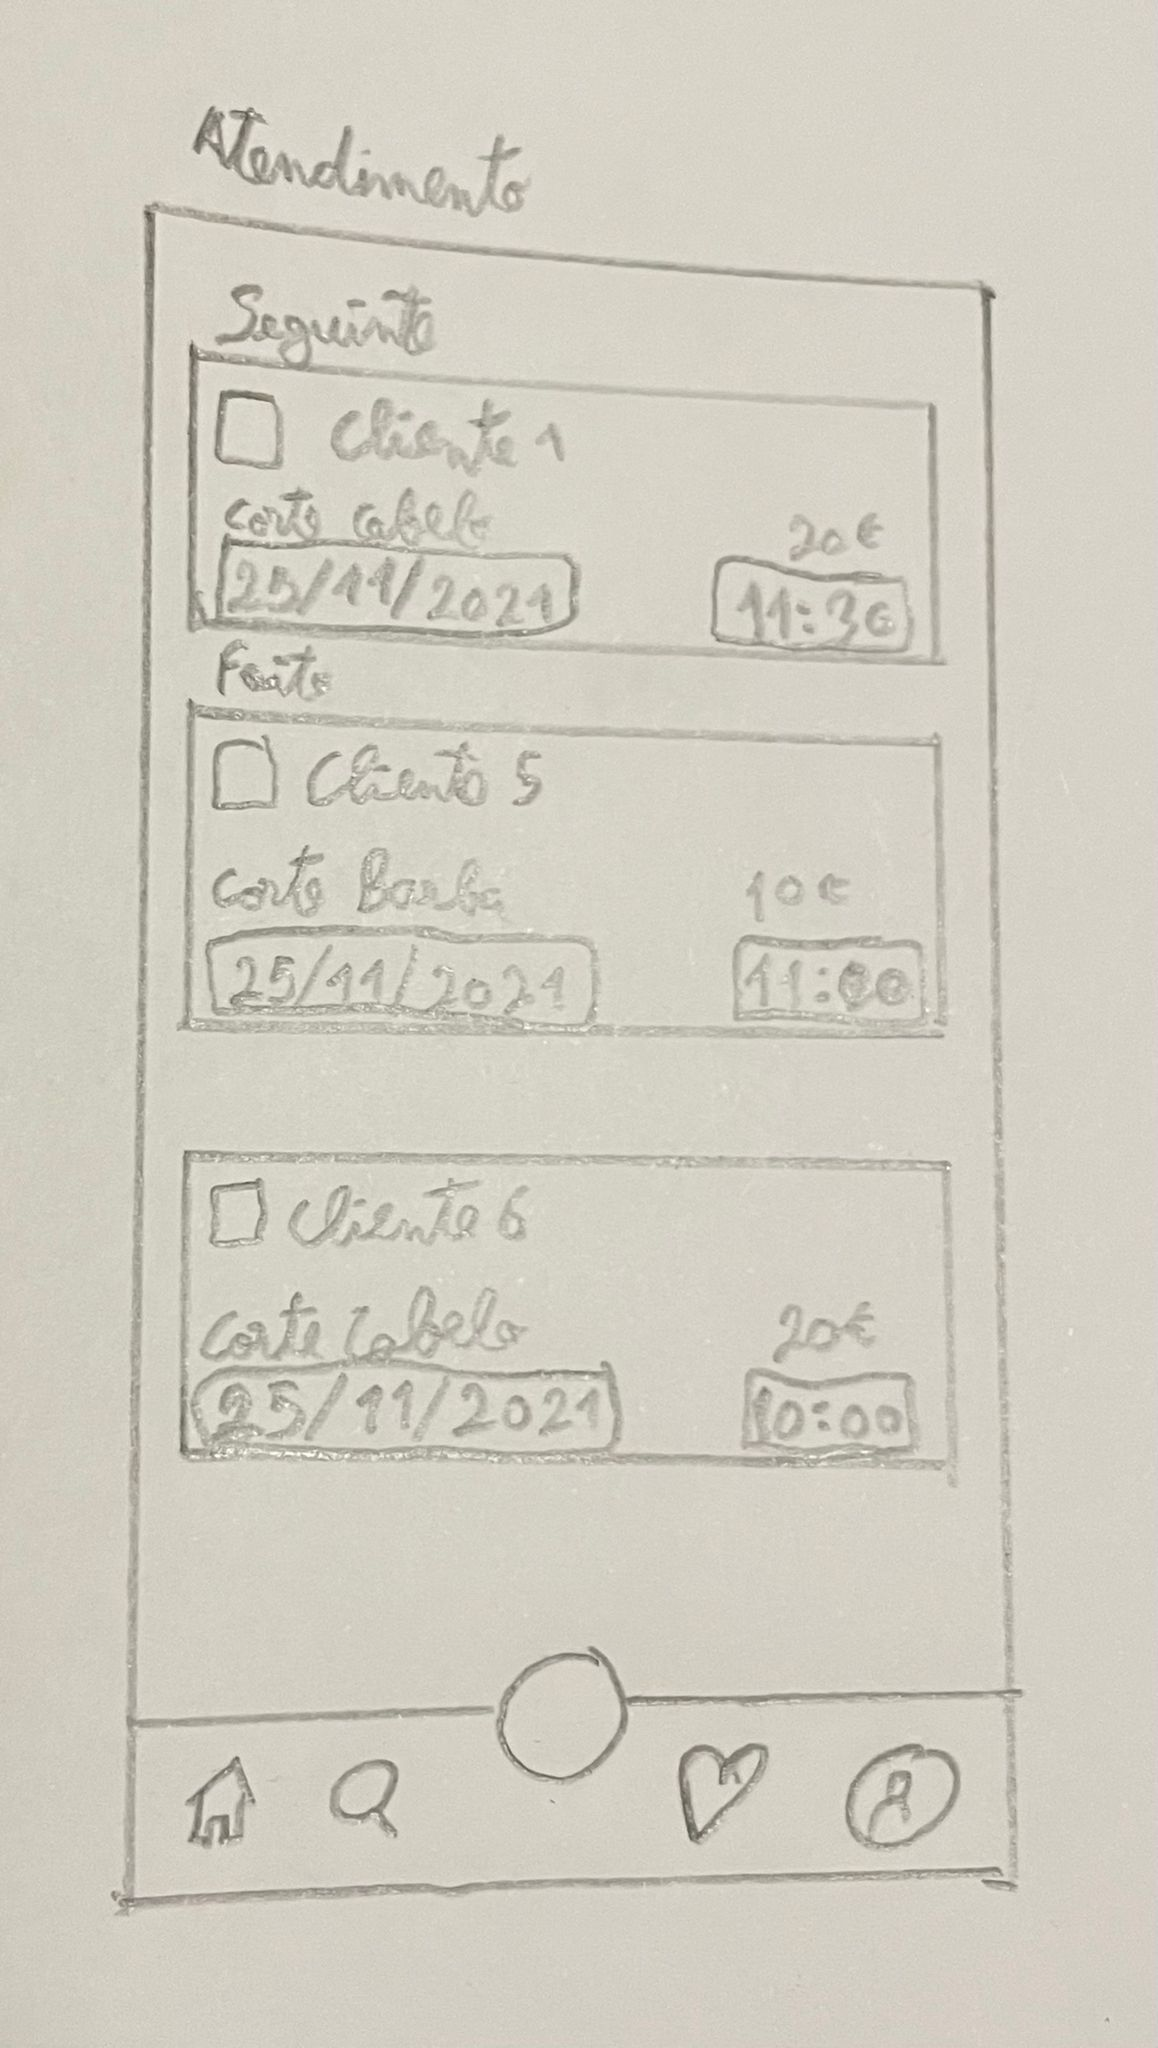 Atendimento
Seguinte
Cliente 1
Corte Cabelo
20€
25/11/2021
11:30
Feito
Cliente 5
Corte Barba
10€
25/11/2021
11:00
Cliente 6
Corte Cabelo
20€
25/11/2021
10:00